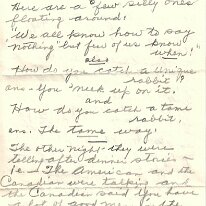 Here are a few silly ones
floating around!
"We all know how to say
nothing but few of us know
when!"
also
How do you catch a unique
rabbit?
ans - You "neek up on it.
and
How do you catch a tame
rabbit,
ans. The tame way!
The other night they were
telling after dinner stories -
The American and the
Canadian were talking and
the Canadian said "You have
a lot of